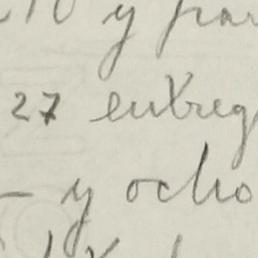 10 y par
27 entreg
- y ocho